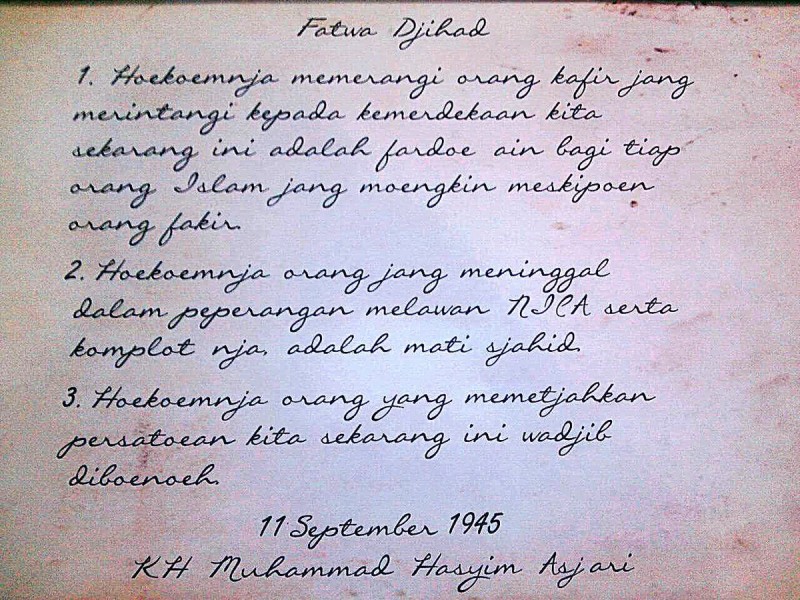 Fatwa Djihad
1. Hoekoemnja memerangi orang kafir jang
merintangi kepada kemerdekaan kita
sekarang ini adalah fardoe ain bagi tiap
orang Islam jang moengkin meskipoen
orang fakir.
2. Hoekoemnja orang jang meninggal
dalam peperangan melawan NICA serta
komplot nja, adalah mati sjahid.
3. Hoekoemnja orang yang memetjahkan
persatoean kita sekarang ini wadjib
diboenoeh.
11 September 1945
KH Muhammad Hasyim Asjari